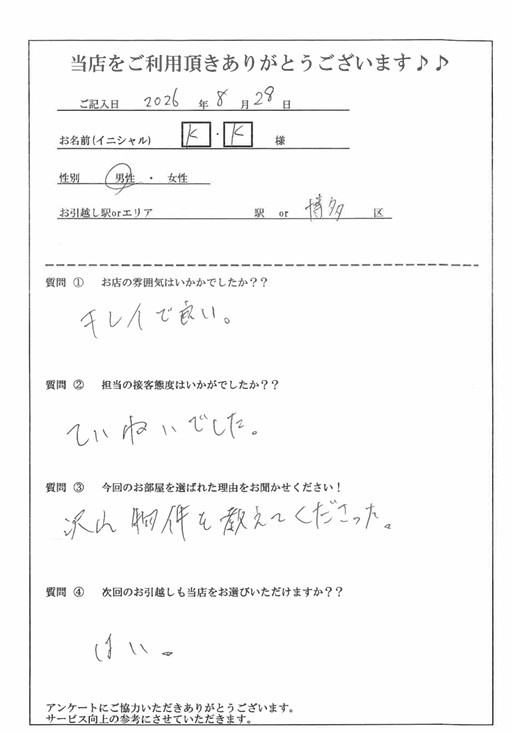 当店をご利用頂きありがとうございます♪♪
ご記入日 2026 年 8 月 28 日
お名前(イニシャル) K ・ K 様
性別 男性 ・ 女性
お引越し駅orエリア 駅 or 博多 区
質問 ① お店の雰囲気はいかかでしたか??
キレイで良い。
質問 ② 担当の接客態度はいかがでしたか??
ていねいでした。
質問 ③ 今回のお部屋を選ばれた理由をお聞かせください!
沢山物件を教えてくださった。
質問 ④ 次回のお引越しも当店をお選びいただけますか??
はい。
アンケートにご協力いただきありがとうございます。
サービス向上の参考にさせていただきます。